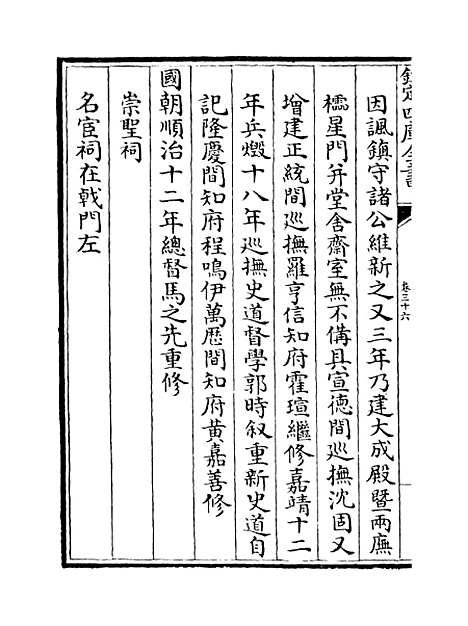 欽定四庫全書
卷三十六
因諷鎮守諸公維新之又三年乃建大成殿暨兩廡
櫺星門并堂舍齋室無不備具宣徳間巡撫沈固又
增建正統間巡撫羅亨信知府霍瑄繼修嘉靖十二
年兵燬十八年巡撫史道督學郭時叙重新史道自
記隆慶間知府程鳴伊萬歴間知府黄嘉善修
國朝順治十二年總督馬之先重修
崇聖祠
名宦祠在㦸門左